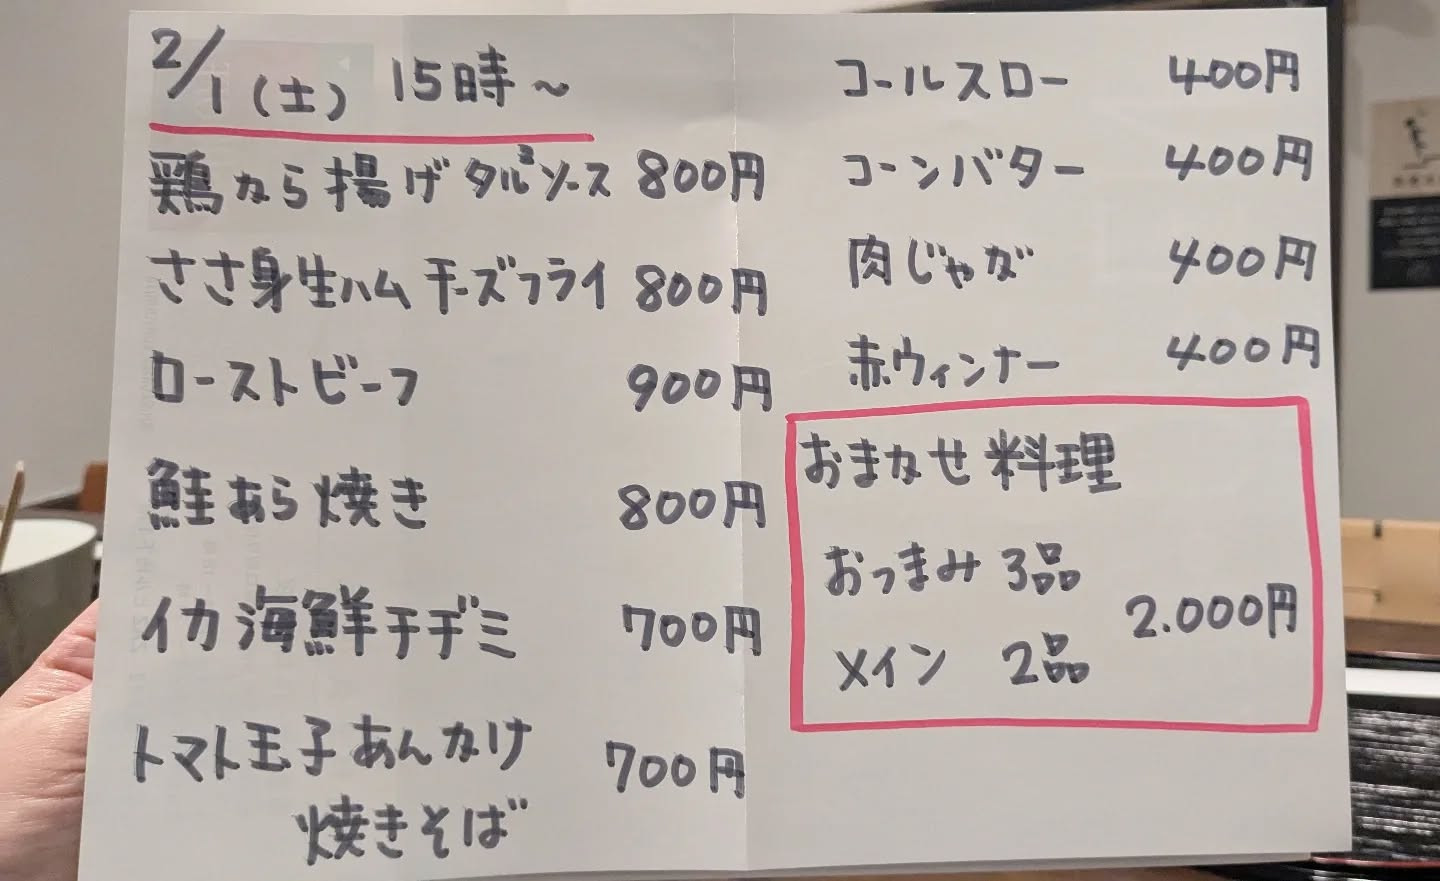 2/1(土) 15時~
鶏から揚げタルタルソース 800円
ささ身生ハムチーズフライ 800円
ローストビーフ 900円
鮭あら焼き 800円
イカ海鮮チヂミ 700円
トマト玉子あんかけ 700円
焼きそば
コールスロー 400円
コーンバター 400円
肉じゃが 400円
赤ウィンナー 400円
おまかせ料理
おつまみ 3品
メイン 2品
2.000円